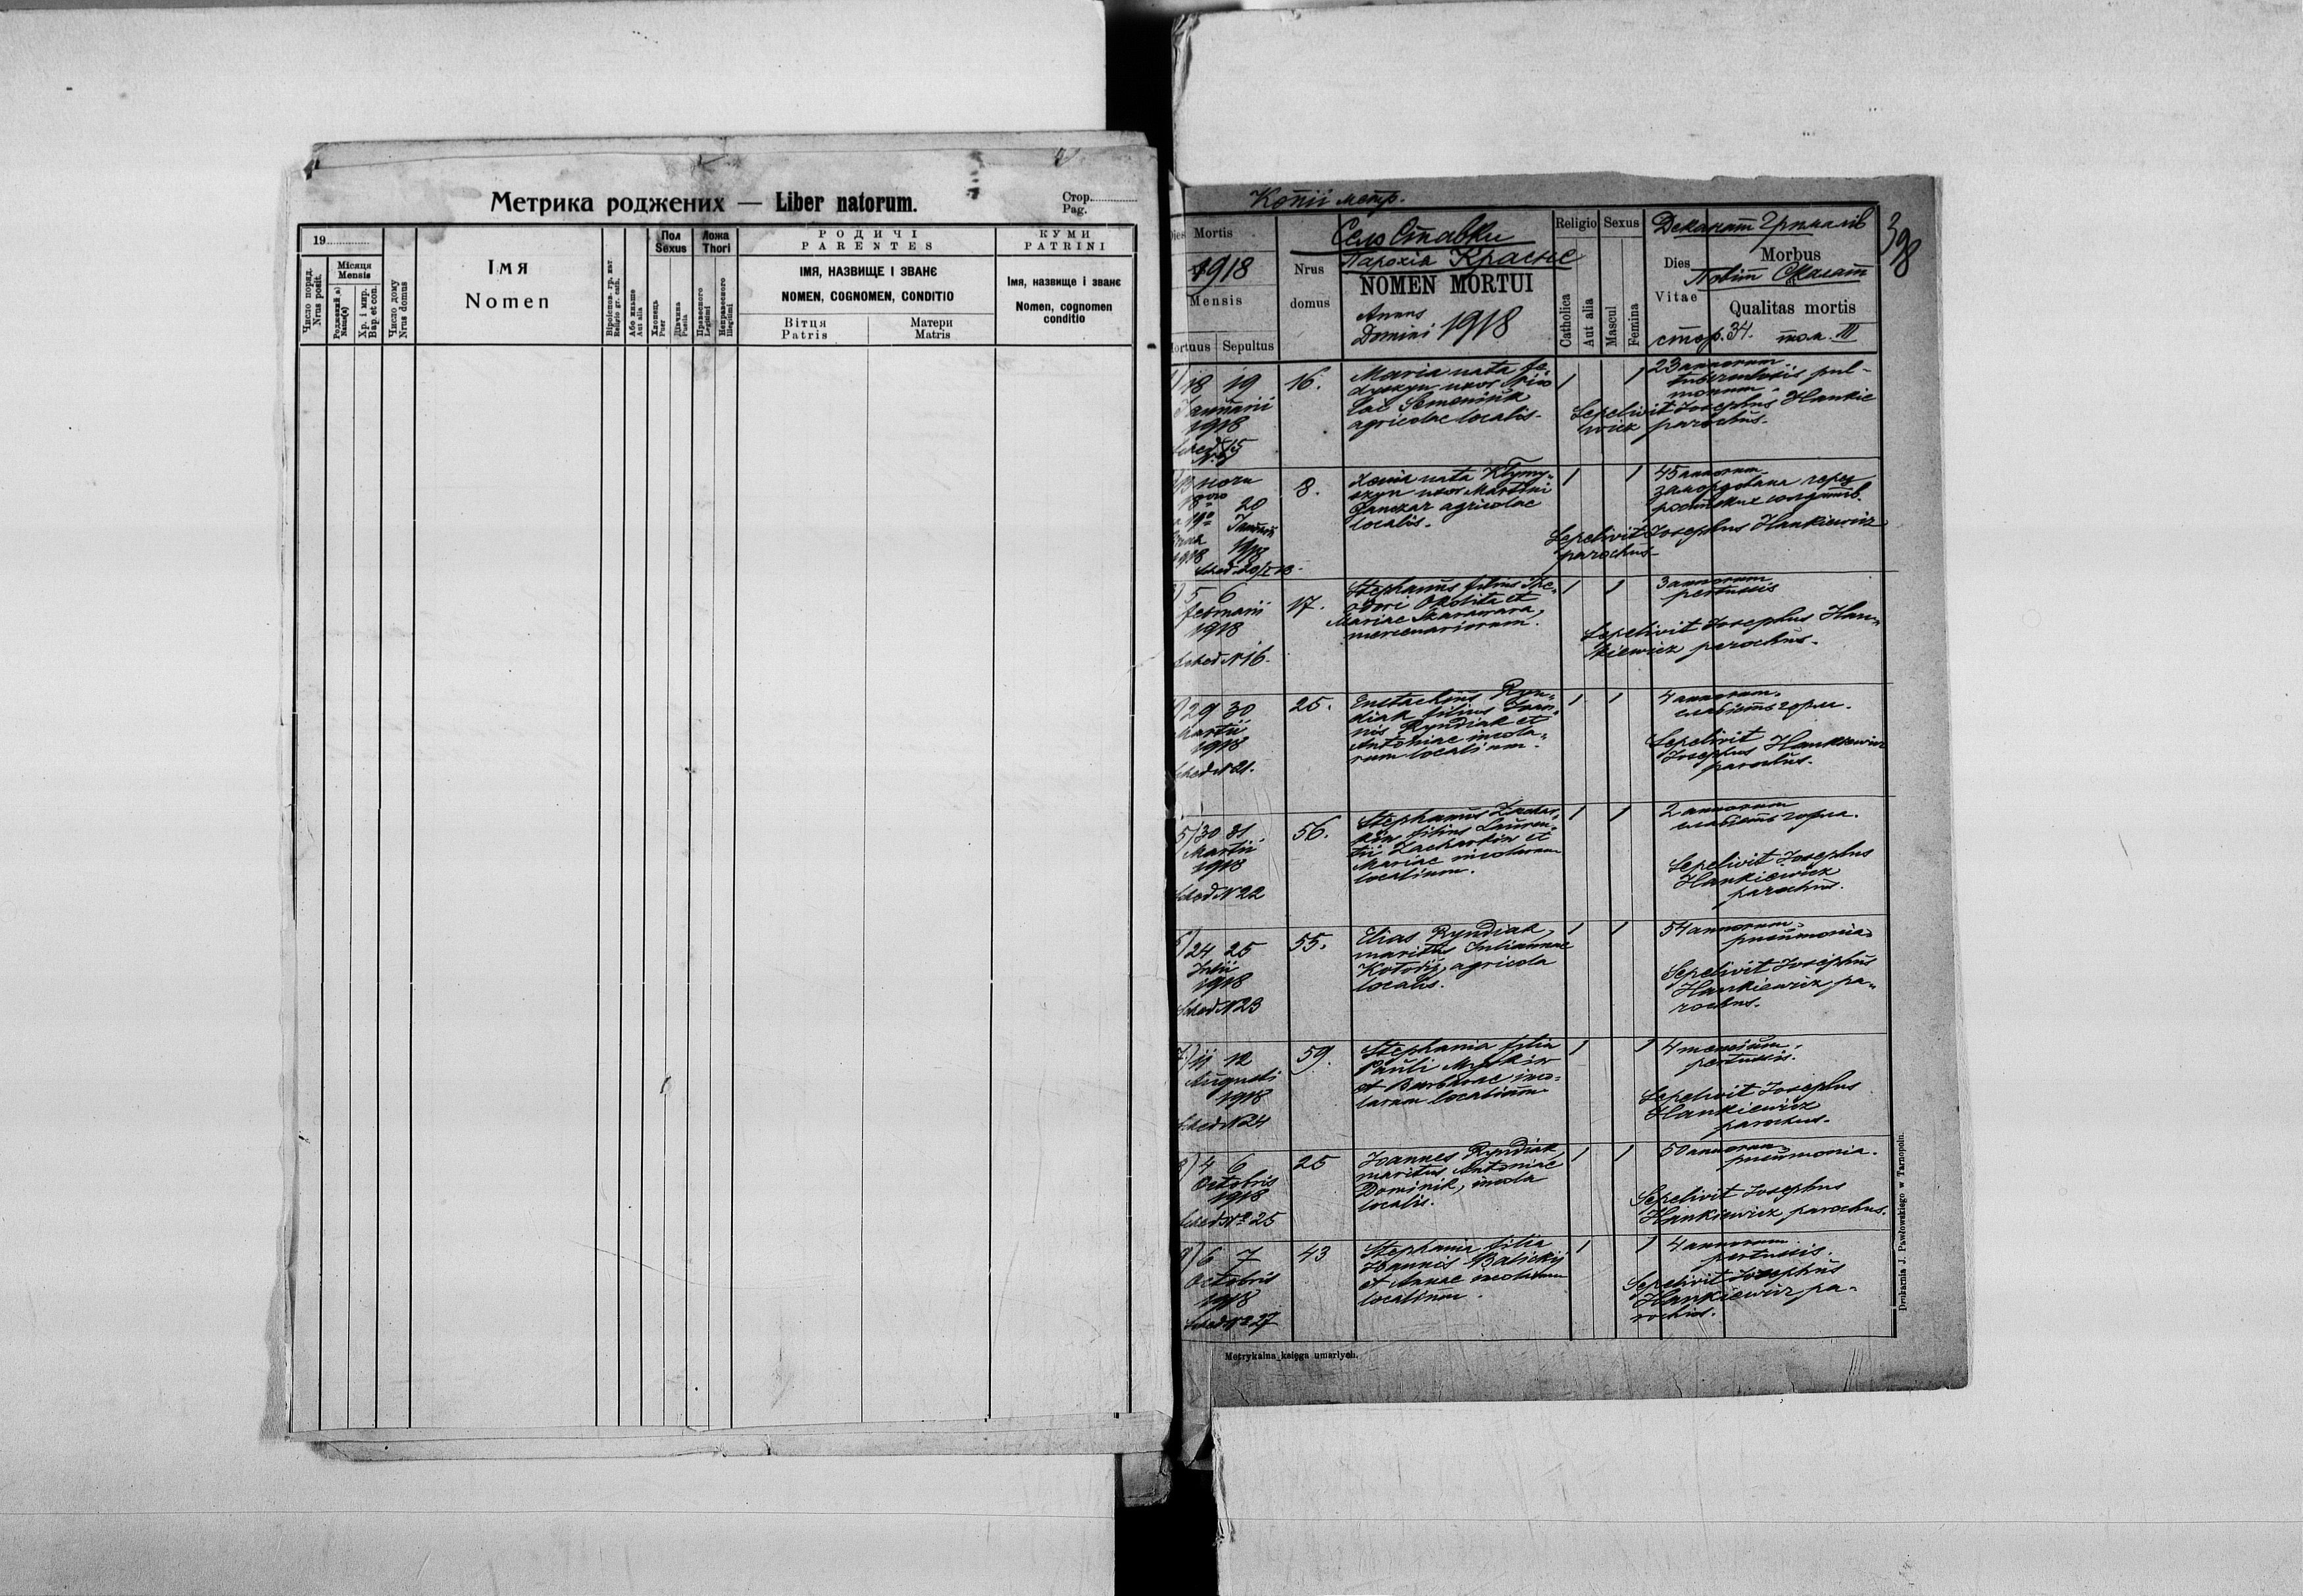 Метрика роджених — Liber natorum.
Стор.
Pag.
19
Число поряд.
Nrus posit.
Місяця
Mensis
Роджений(а)
Natus(a)
Хр. і мир.
Bap. et con.
Число дому
Nrus domus
Імя
Nomen
Або инше
Aut alia
Пол
Sexus
Хлопець
Puer
Дівчина
Puella
Ложа
Thori
Правесного
Legitimi
Неправесного
Illegitimi
РОДИЧІ
PARENTES
ІМЯ, НАЗВИЩЕ І ЗВАНЄ
NOMEN, COGNOMEN, CONDITIO
Вітця
Patris
Матери
Matris
КУМИ
PATRINI
Імя, назвище і званє
Nomen, cognomen
conditio
Копії метр.
398
Dies Mortis
1918
Mensis
Mortuus Sepultus
Nrus
domus
Село Ставки
Парохія Красне
NOMEN MORTUI
Annus
Domini 1918
Religio
Catholica
Aut alia
Sexus
Mascul
Femina
Деканат Грималів
Dies
Vitae
Morbus
Повіт Скалат
Qualitas mortis
стор. 34. том. III
18 19
Januarii
1918
16.
Maria nata Fe-
agricolae localis.
1 1
23 annorum
tuberculosis pul-
monum.
Sepelivit Josephus Hankie
wicz parochus.
20
1918
8.
uxor Martini
agricolae
localis.
1 1
45 annorum
Sepelivit Josephus Hankiewicz
parochus
5 6
Februarii
1918
Sched N 16.
17.
Stephanus filius The-
odori Okolita et
Mariae Skaramara,
mercenariorum.
1 1
3 annorum
pertussis
Sepelivit Josephus Han-
kiewicz parochus.
29 30
Martii
1918
Sched N 21.
25.
Eustachius Ryn-
diak filius Joan-
nis Ryndiak et
Antoniae incola-
rum localium.
1 1
4 annorum.
слабість горла.
Sepelivit
Josephus Hankiewicz
parochus.
5) 30 31
Martii
1918
Sched N 22
56.
Stephanus Zachar-
kiw filius Lauren-
tii Zacharkiw et
Mariae incolarum
localium.
1 1
2 annorum
слабість горла.
Sepelivit Josephus
Hankiewicz
parochus.
6) 24 25
Julii
1918
Sched N 23
55.
Elias Ryndiak,
maritus Juliannae
Kotodij, agricola
localis.
1 1
54 annorum
pneumonia
Sepelivit Josephus
Hankiewicz pa-
rochus.
7) 11 12
Augusti
1918
Sched N 24
59.
Stephania filia
Pauli Myskiw
et Barbarae inco-
larum localium
1 1
4 mensium.
pertussis.
Sepelivit Josephus
Hankiewicz
parochus.
8) 4 6
Octobris
1918
Sched Nº 25
25
Joannes Ryndiak,
maritus Antoniae
Dominik, incola
localis.
1 1
50 annorum
pneumonia.
Sepelivit Josephus
Hankiewicz parochus.
9) 6 7
Octobris
1918
Sched Nº 27
43
Stephania filia
Joannis Balickij
et Annae incolarum
localium.
1 1
4 annorum
pertussis.
Sepelivit Josephus
Hankiewicz pa-
rochus.
Metrykalna księga umarłych.
Drukarnia J. Pawłowskiego w Tarnopolu.